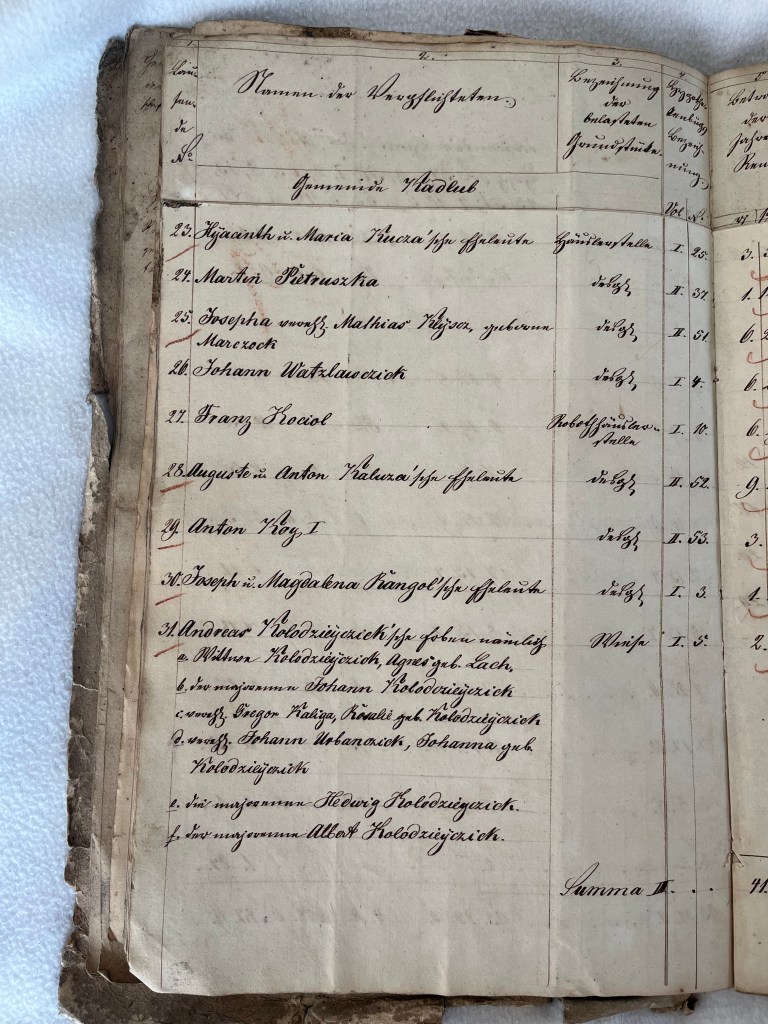 1. 2. 3. 4. 5
Lau-
fen-
de
No
Namen der Verpflichteten.
Bezeichnung
der
belasteten
Grundstücke.
Hypothe-
kenbuchs
Bezeich-
nung.
Vol No.
Betra
der
Jahres
Ren
Gemeinde Kadlub
23. Hÿacinth u. Maria Kucza'sche Eheleute Häuslerstelle I. 25. 3.
24. Martin Pietruszka desgl. II. 37. 1.
25. Josepha verehl. Mathias Klÿscz, geborene desgl. II. 51. 6.
Marczock
26. Johann Watzlawczick desgl. I. 4. 6.
27. Franz Kociol Robothhäusler- I. 10. 6.
stelle
28. Auguste u. Anton Kaluza'sche Eheleute desgl. II. 52. 9.
29. Anton Koy I desgl. II. 53. 3.
30. Joseph u. Magdalena Kangol'sche Eheleute desgl. I. 3. 1.
31. Andreas Kolodzieÿczick'sche Erben nämlich Wiese I. 5. 2.
a. Wittwe Kolodzieÿczick, Agnes geb. Lach.
b. der majorenne Johann Kolodzieÿczick
c. verehl. Gregor Kaliga, Rosalie geb. Kolodzieÿczick
d. verehl. Johann Urbanczick, Johanna geb.
Kolodzieÿczick
e. die majorenne Hedwig Kolodzieyczick.
f. der majorenne Albert Kolodzieÿczick.
Summa III. . . 41.